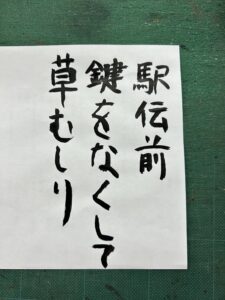 駅伝前
鍵をなくして
草むしり